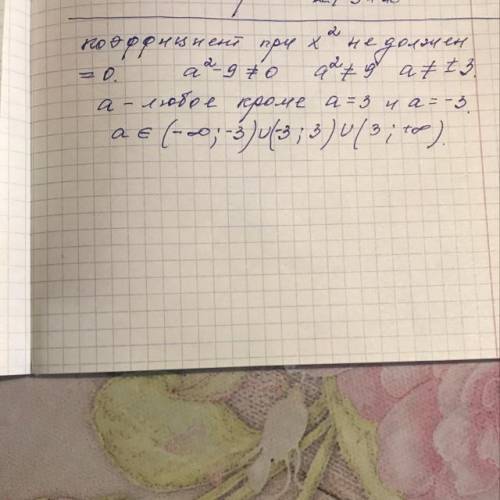 коэффициент при x² не должен
= 0. a²-9≠0 a²≠9 a≠±3.
a - любое кроме a=3 и a=-3.
a ∈ (-∞; -3)∪(-3; 3)∪(3; +∞).